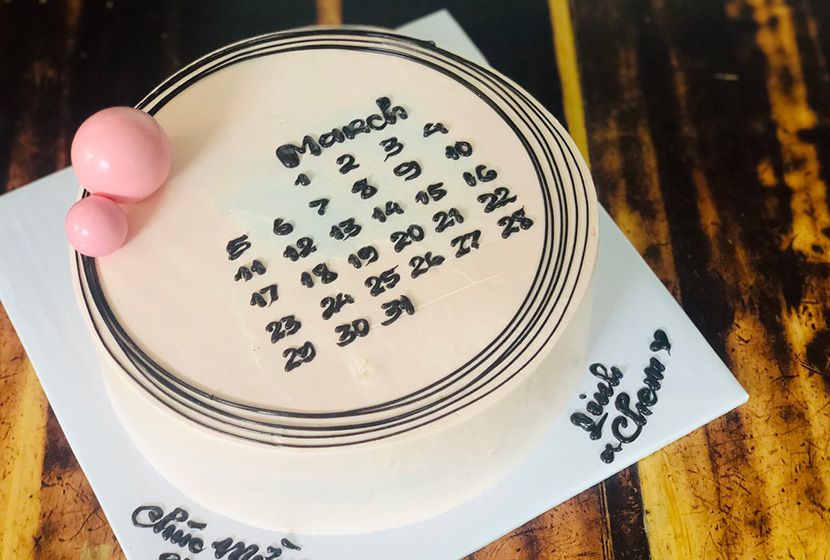 March
1 2 3 4
5 6 7 8 9 10
11 12 13 14 15 16
17 18 19 20 21 22
23 24 25 26 27 28
29 30 31
Linh
Chem
Chúc